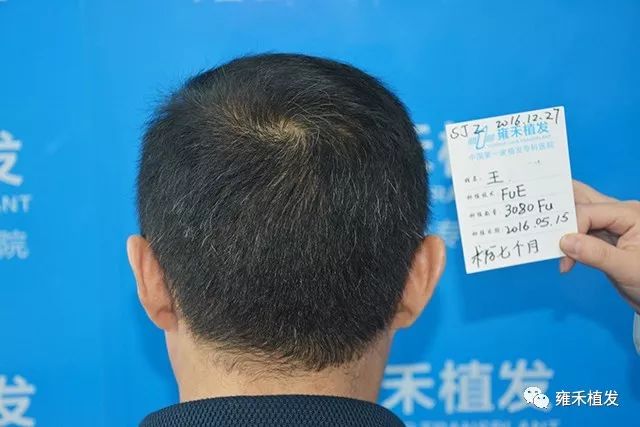 SJZ 2016.12.27
雍禾植发
中国第一家植发专科医院
姓名: 王
种植技术: FUE
种植数量: 3080Fu
种植日期: 2016.05.15
术后七个月
雍禾植发
院
雍禾植发
雍禾植发